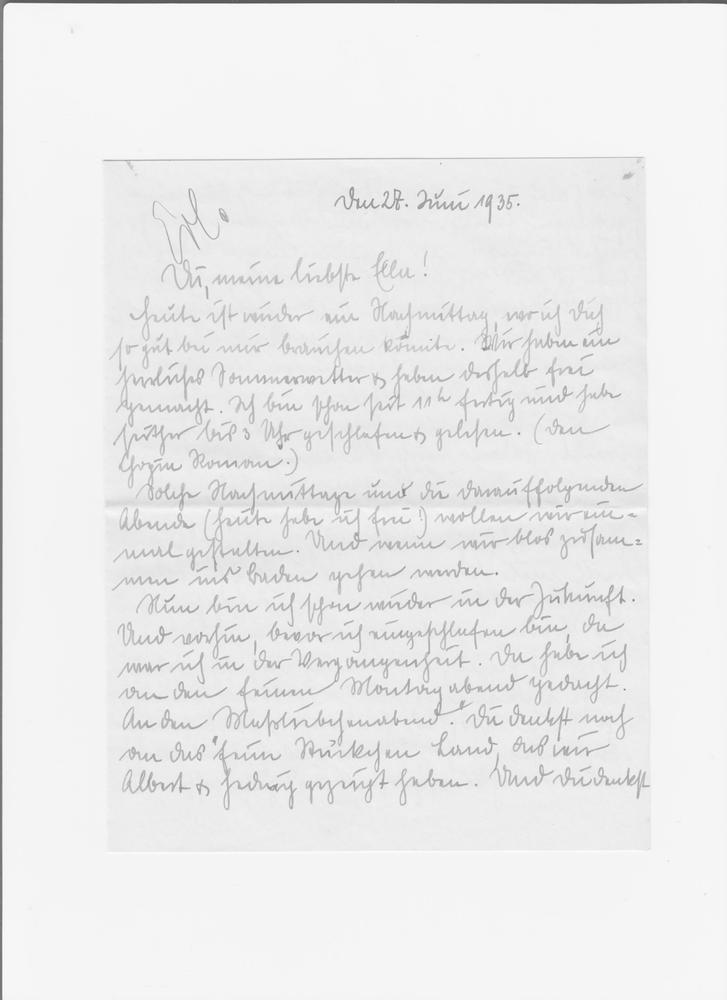 Erl.
Den 27. Juni 1935.
Du, meine liebste Ella!
Heute ist wieder ein Nachmittag, wo ich Dich
so gut bei mir brauchen könnte. Wir haben ein
herrliches Sommerwetter & haben deshalb frei
gemacht. Ich bin schon seit 11h fertig und habe
seither bis 3 Uhr geschlafen & gelesen. (Den
Roman.)
Solche Nachmittage und die darauffolgenden
Abende (heute habe ich frei!) wollen wir ein=
mal gestalten. Und wenn wir blos zusam=
men ins Baden gehen werden.
Nun bin ich schon wieder in der Zukunft.
Und vorhin, bevor ich eingeschlafen bin, da
war ich in der Vergangenheit. Da habe ich
an den feinen Montagabend gedacht.
An den Du denkst noch
an das feine Stückchen Land, das wir
Albert & Hedwig gezeigt haben. Und Du denkst